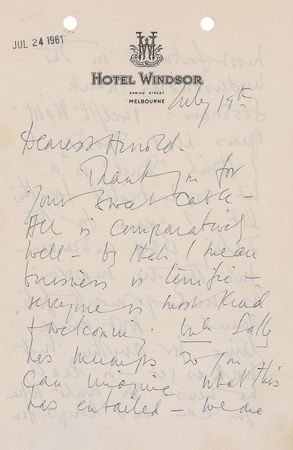 JUL 24 1961
HOTEL WINDSOR
SPRING STREET
MELBOURNE
July 19th
Dearest Harold.
Thank you for
your sweet cable -
All is comparatively
well - by that I mean
business is terrific -
everyone is most kind
& welcoming. but Sally
has mumps so you
can imagine what this
has entailed - we are